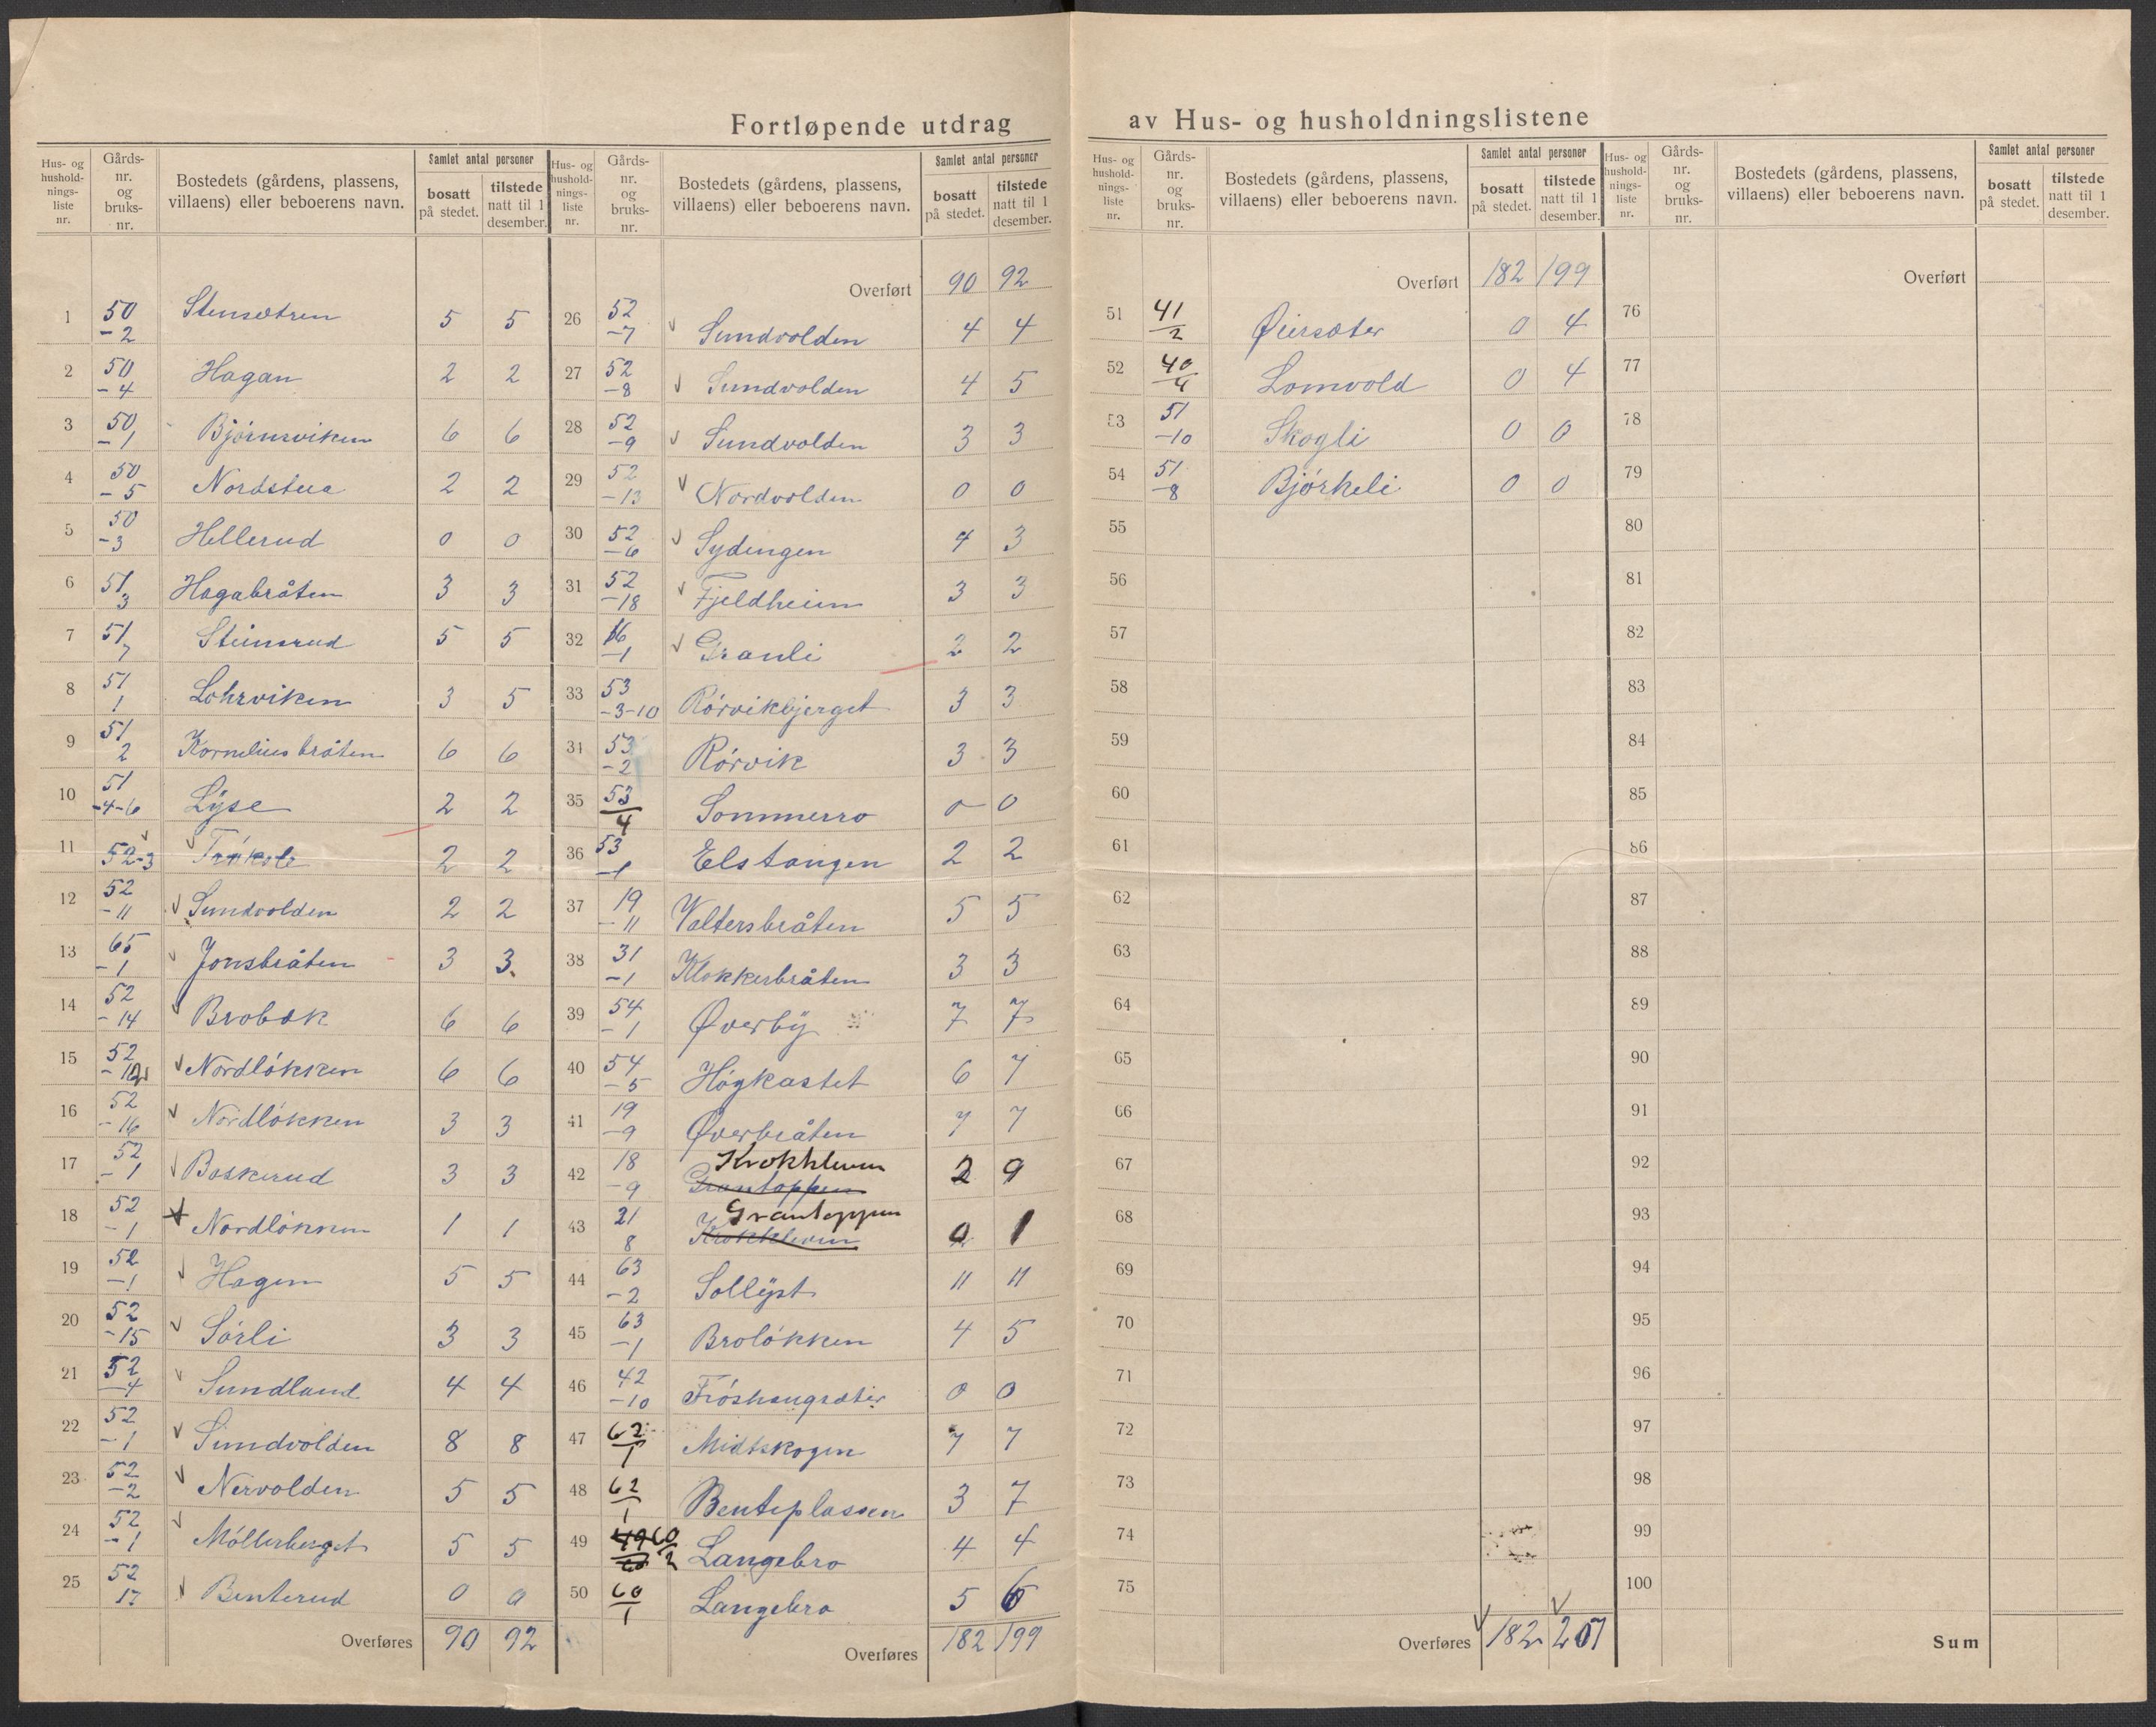 Fortløpende utdrag av Hus- og husholdningslistene
Hus- og husholdnings- liste nr. | Gårds- nr. og bruks- nr. | Bostedets (gårdens, plassens, villaens) eller beboerens navn. | Samlet antal personer | bosatt på stedet. | tilstede natt til 1 desember.
1 50 -2 Stensætren 5 5
2 50 -4 Hagan 2 2
3 50 -1 Bjørnsviken 6 6
4 50 -5 Nordstua 2 2
5 50 -3 Hellerud 0 0
6 51 3 Hagabråten 3 3
7 51 7 Steinsrud 5 5
8 51 1 Lohrviken 3 5
9 51 2 Korneliusbråten 6 6
10 51 -4-6 Lyse 2 2
11 52-3 2 2
12 52 -11 Sundvolden 2 2
13 65 -1 Jonsbråten 3 3
14 52 -14 Brobæk 6 6
15 52 Nordløkken 6 6
16 52 -16 Nordløkken 3 3
17 52 -1 Baskerud 3 3
18 52 -1 Nordløkken 1 1
19 52 -1 Hagen 5 5
20 52 -15 Sørli 3 3
21 52 -4 Sundland 4 4
22 52 -1 Sundvolden 8 8
23 52 -2 Nervolden 5 5
24 52 -1 Møllerberget 5 5
25 52 17 Benterud 0 0
Overføres 90 92
Hus- og husholdnings- liste nr. | Gårds- nr. og bruks- nr. | Bostedets (gårdens, plassens, villaens) eller beboerens navn. | Samlet antal personer | bosatt på stedet. | tilstede natt til 1 desember.
Overført 90 92
26 52 -7 Sundvolden 4 4
27 52 -8 Sundvolden 4 5
28 52 -9 Sundvolden 3 3
29 52 -13 Nordvolden 0 0
30 52 -6 Sydengen 4 3
31 52 -18 Fjeldheim 3 3
32 16 -1 Granli 2 2
33 53 -3-10 Rørvikbjerget 3 3
34 53 -2 Rørvik 3 3
35 53 4 Sommerro 0 0
36 53 -1 Elstangen 2 2
37 19 -11 Valtersbråten 5 5
38 31 -1 Klokkerbråten 3 3
39 54 -1 Øverby 7 7
40 54 -5 Høgkastet 6 7
41 19 -9 Øverbråten 7 7
42 18 -9 Krokkleven Grantoppen 2 9
43 21 8 Grantoppen Krokkleven 0 1
44 63 -2 Sollyst 11 11
45 63 -1 Broløkken 4 5
46 42 -10 Frøshaugsæter 0 0
47 62 1 Midtskogen 7 7
48 62 1 Benteplassen 3 7
49 60 2 Langebro 4 4
50 60 1 Langebro 5 6
Overføres 182 199
Hus- og husholdnings- liste nr. | Gårds- nr. og bruks- nr. | Bostedets (gårdens, plassens, villaens) eller beboerens navn. | Samlet antal personer | bosatt på stedet. | tilstede natt til 1 desember.
Overført 182 199
51 41 2 Øiersæter 0 4
52 40 4 Lomvold 0 4
53 51 -10 Skogli 0 0
54 51 -8 Bjørkeli 0 0
55
56
57
58
59
60
61
62
63
64
65
66
67
68
69
70
71
72
73
74
75
Overføres 182 207
Hus- og husholdnings- liste nr. | Gårds- nr. og bruks- nr. | Bostedets (gårdens, plassens, villaens) eller beboerens navn. | Samlet antal personer | bosatt på stedet. | tilstede natt til 1 desember.
Overført
76
77
78
79
80
81
82
83
84
85
86
87
88
89
90
91
92
93
94
95
96
97
98
99
100
Sum